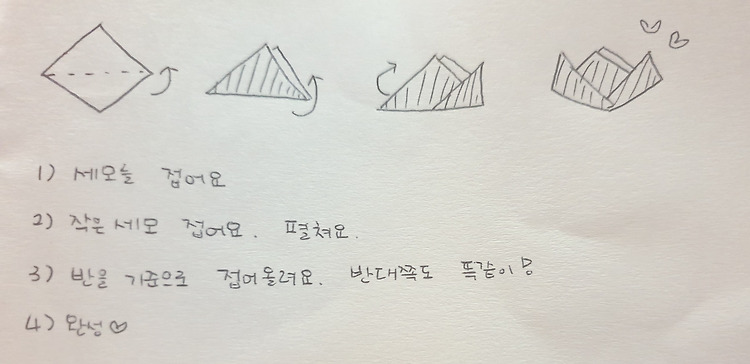 1) 세모늘 접어요
2) 작은세모 접어요. 펼쳐요.
3) 반을 기준으로 접어올려요. 반대쪽도 똑같이!
4) 완성♡